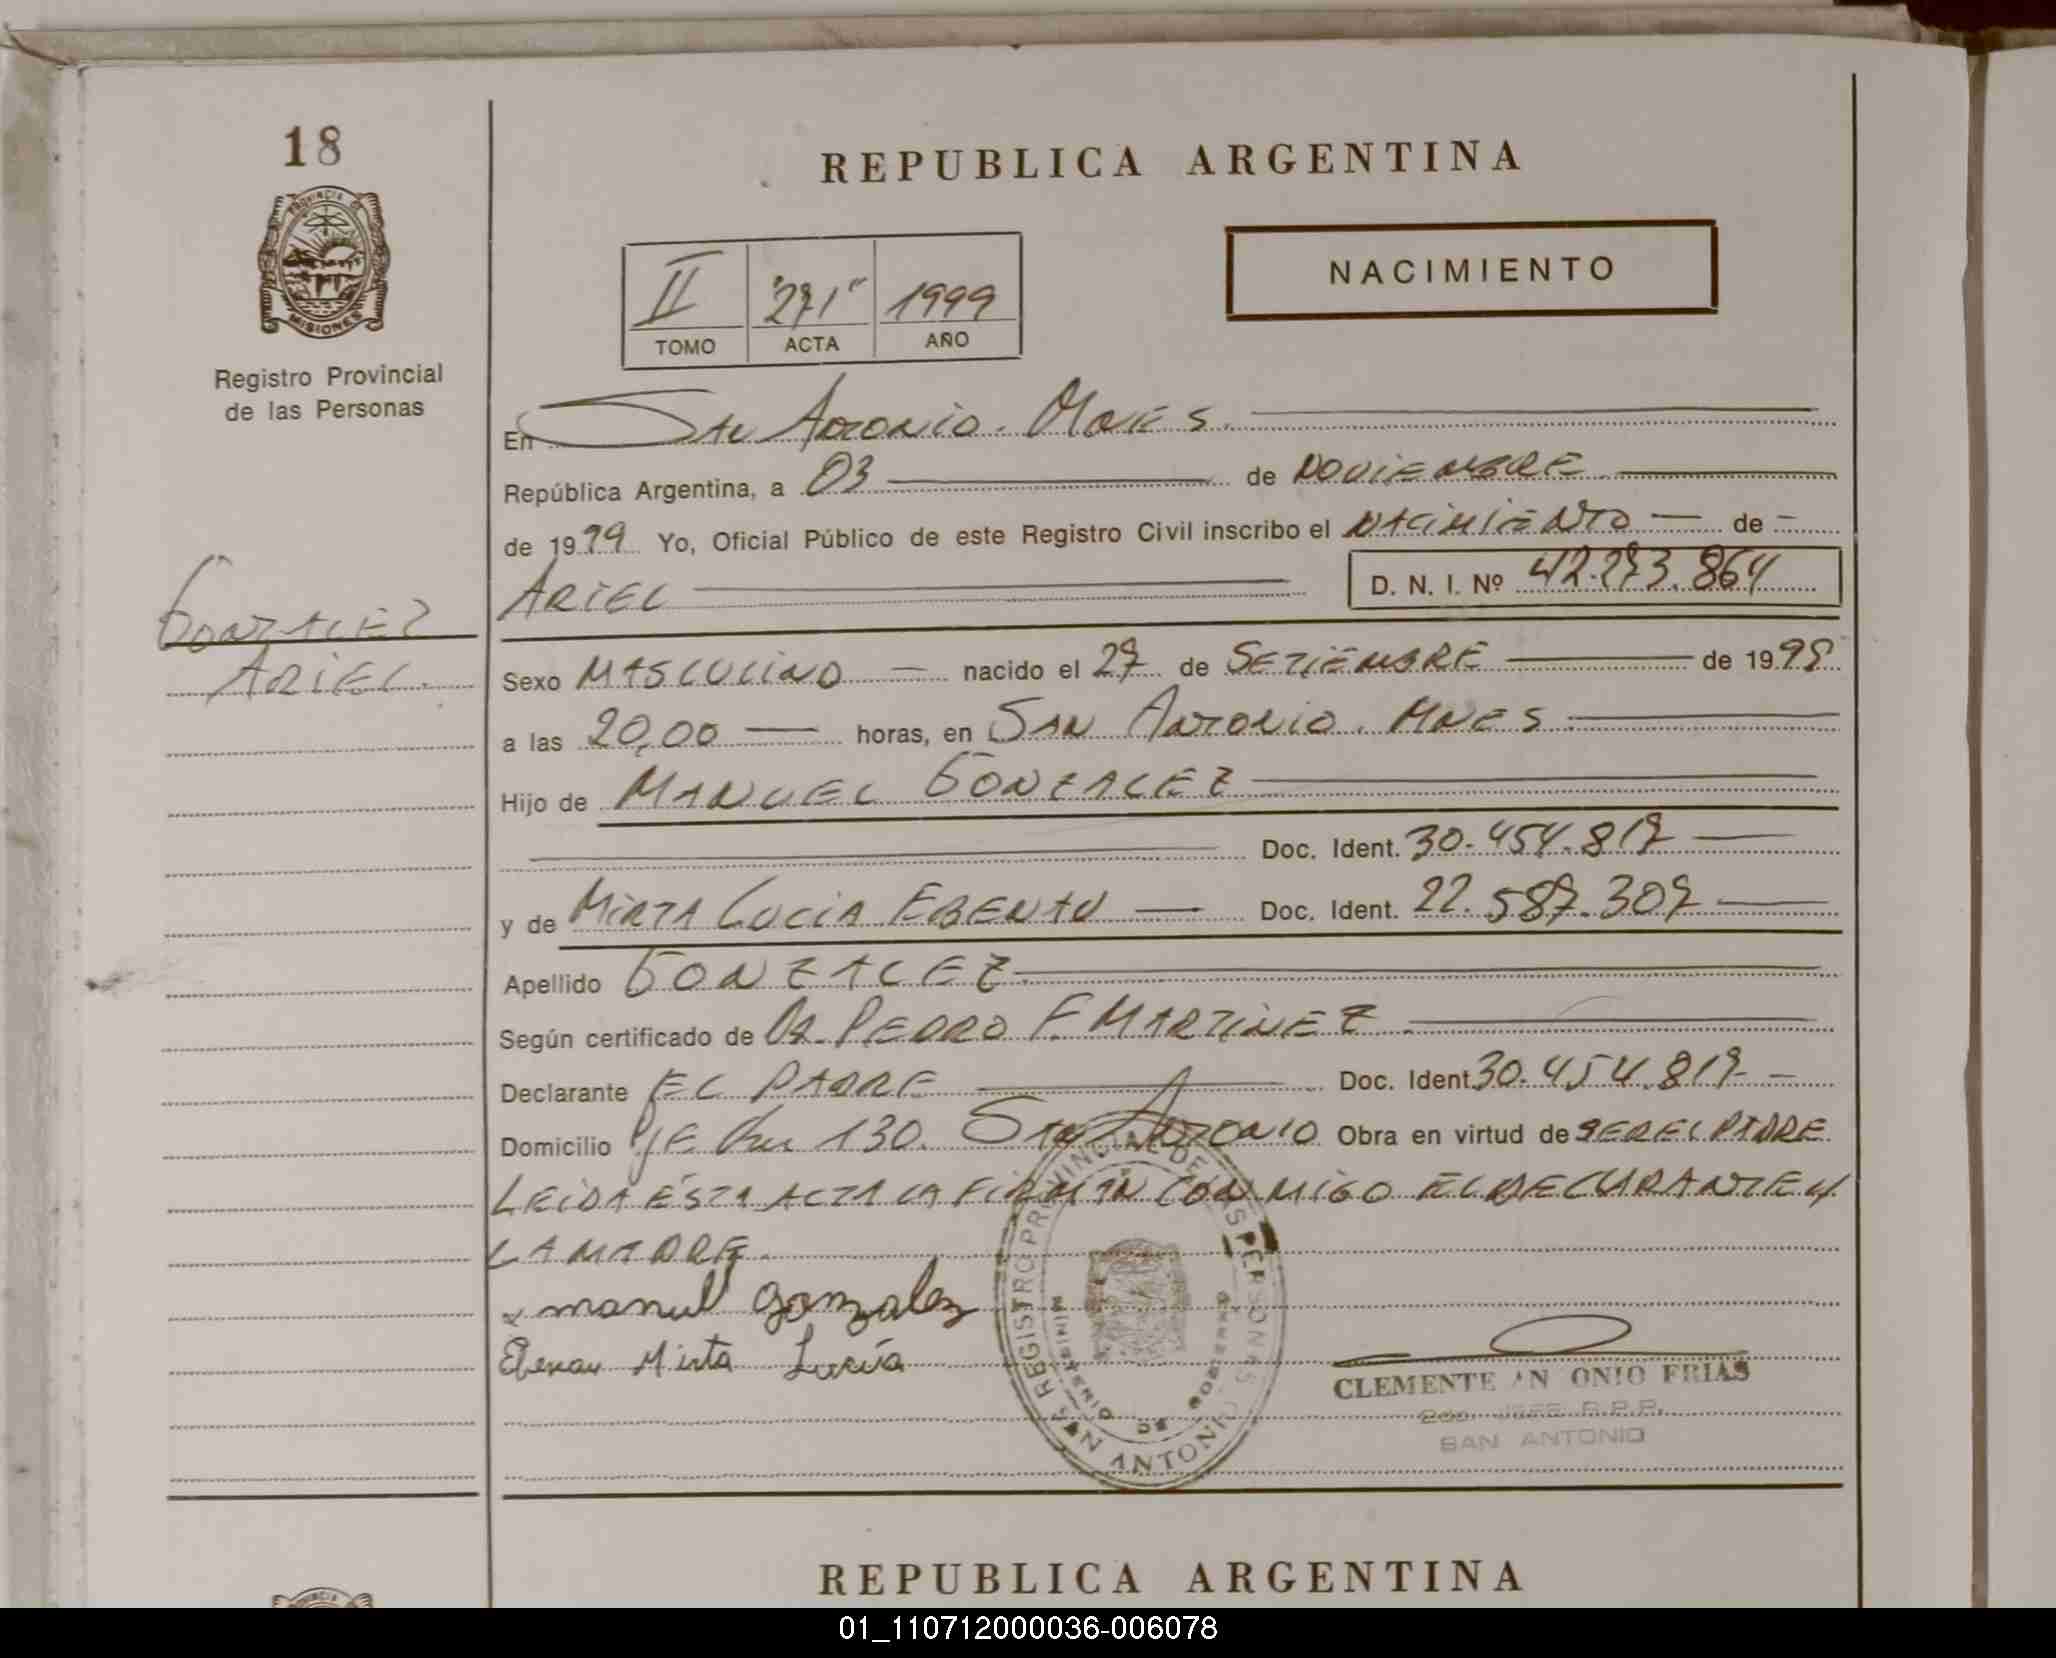 18
PROVINCIA DE
MISIONES
Registro Provincial
de las Personas
REPUBLICA ARGENTINA
NACIMIENTO
II "271" 1999
TOMO ACTA AÑO
En San Antonio. Mnes.
República Argentina, a 03 de NOVIEMBRE
de 1999 Yo, Oficial Público de este Registro Civil inscribo el NACIMIENTO de
ARIEL D. N. I. Nº 42.273.864
GONZALEZ
ARIEL.
Sexo MASCULINO nacido el 27 de SETIEMBRE de 1998
a las 20,00 horas, en SAN ANTONIO. MNES
Hijo de MANUEL GONZALEZ
Doc. Ident. 30.454.817
y de MIRTA LUCIA EBENAU Doc. Ident. 22.587.307
Apellido GONZALEZ
Según certificado de Dr. PEDRO F. MARTINEZ
Declarante EL PADRE Doc. Ident. 30.454.817
Domicilio 130. SAN ANTONIO Obra en virtud de SER EL PADRE
LEIDA ÉSTA ACTA LA FIRMAN CONMIGO EL DECLARANTE Y
LA MADRE.
manuel gonzalez
Ebenau Mirta Lucía
REGISTRO PROVINCIAL DE LAS PERSONAS
MINISTERIO DE GOBIERNO
SAN ANTONIO
CLEMENTE AN ONIO FRIAS
2do. JEFE R.P.P.
SAN ANTONIO
REPUBLICA ARGENTINA
01_110712000036-006078